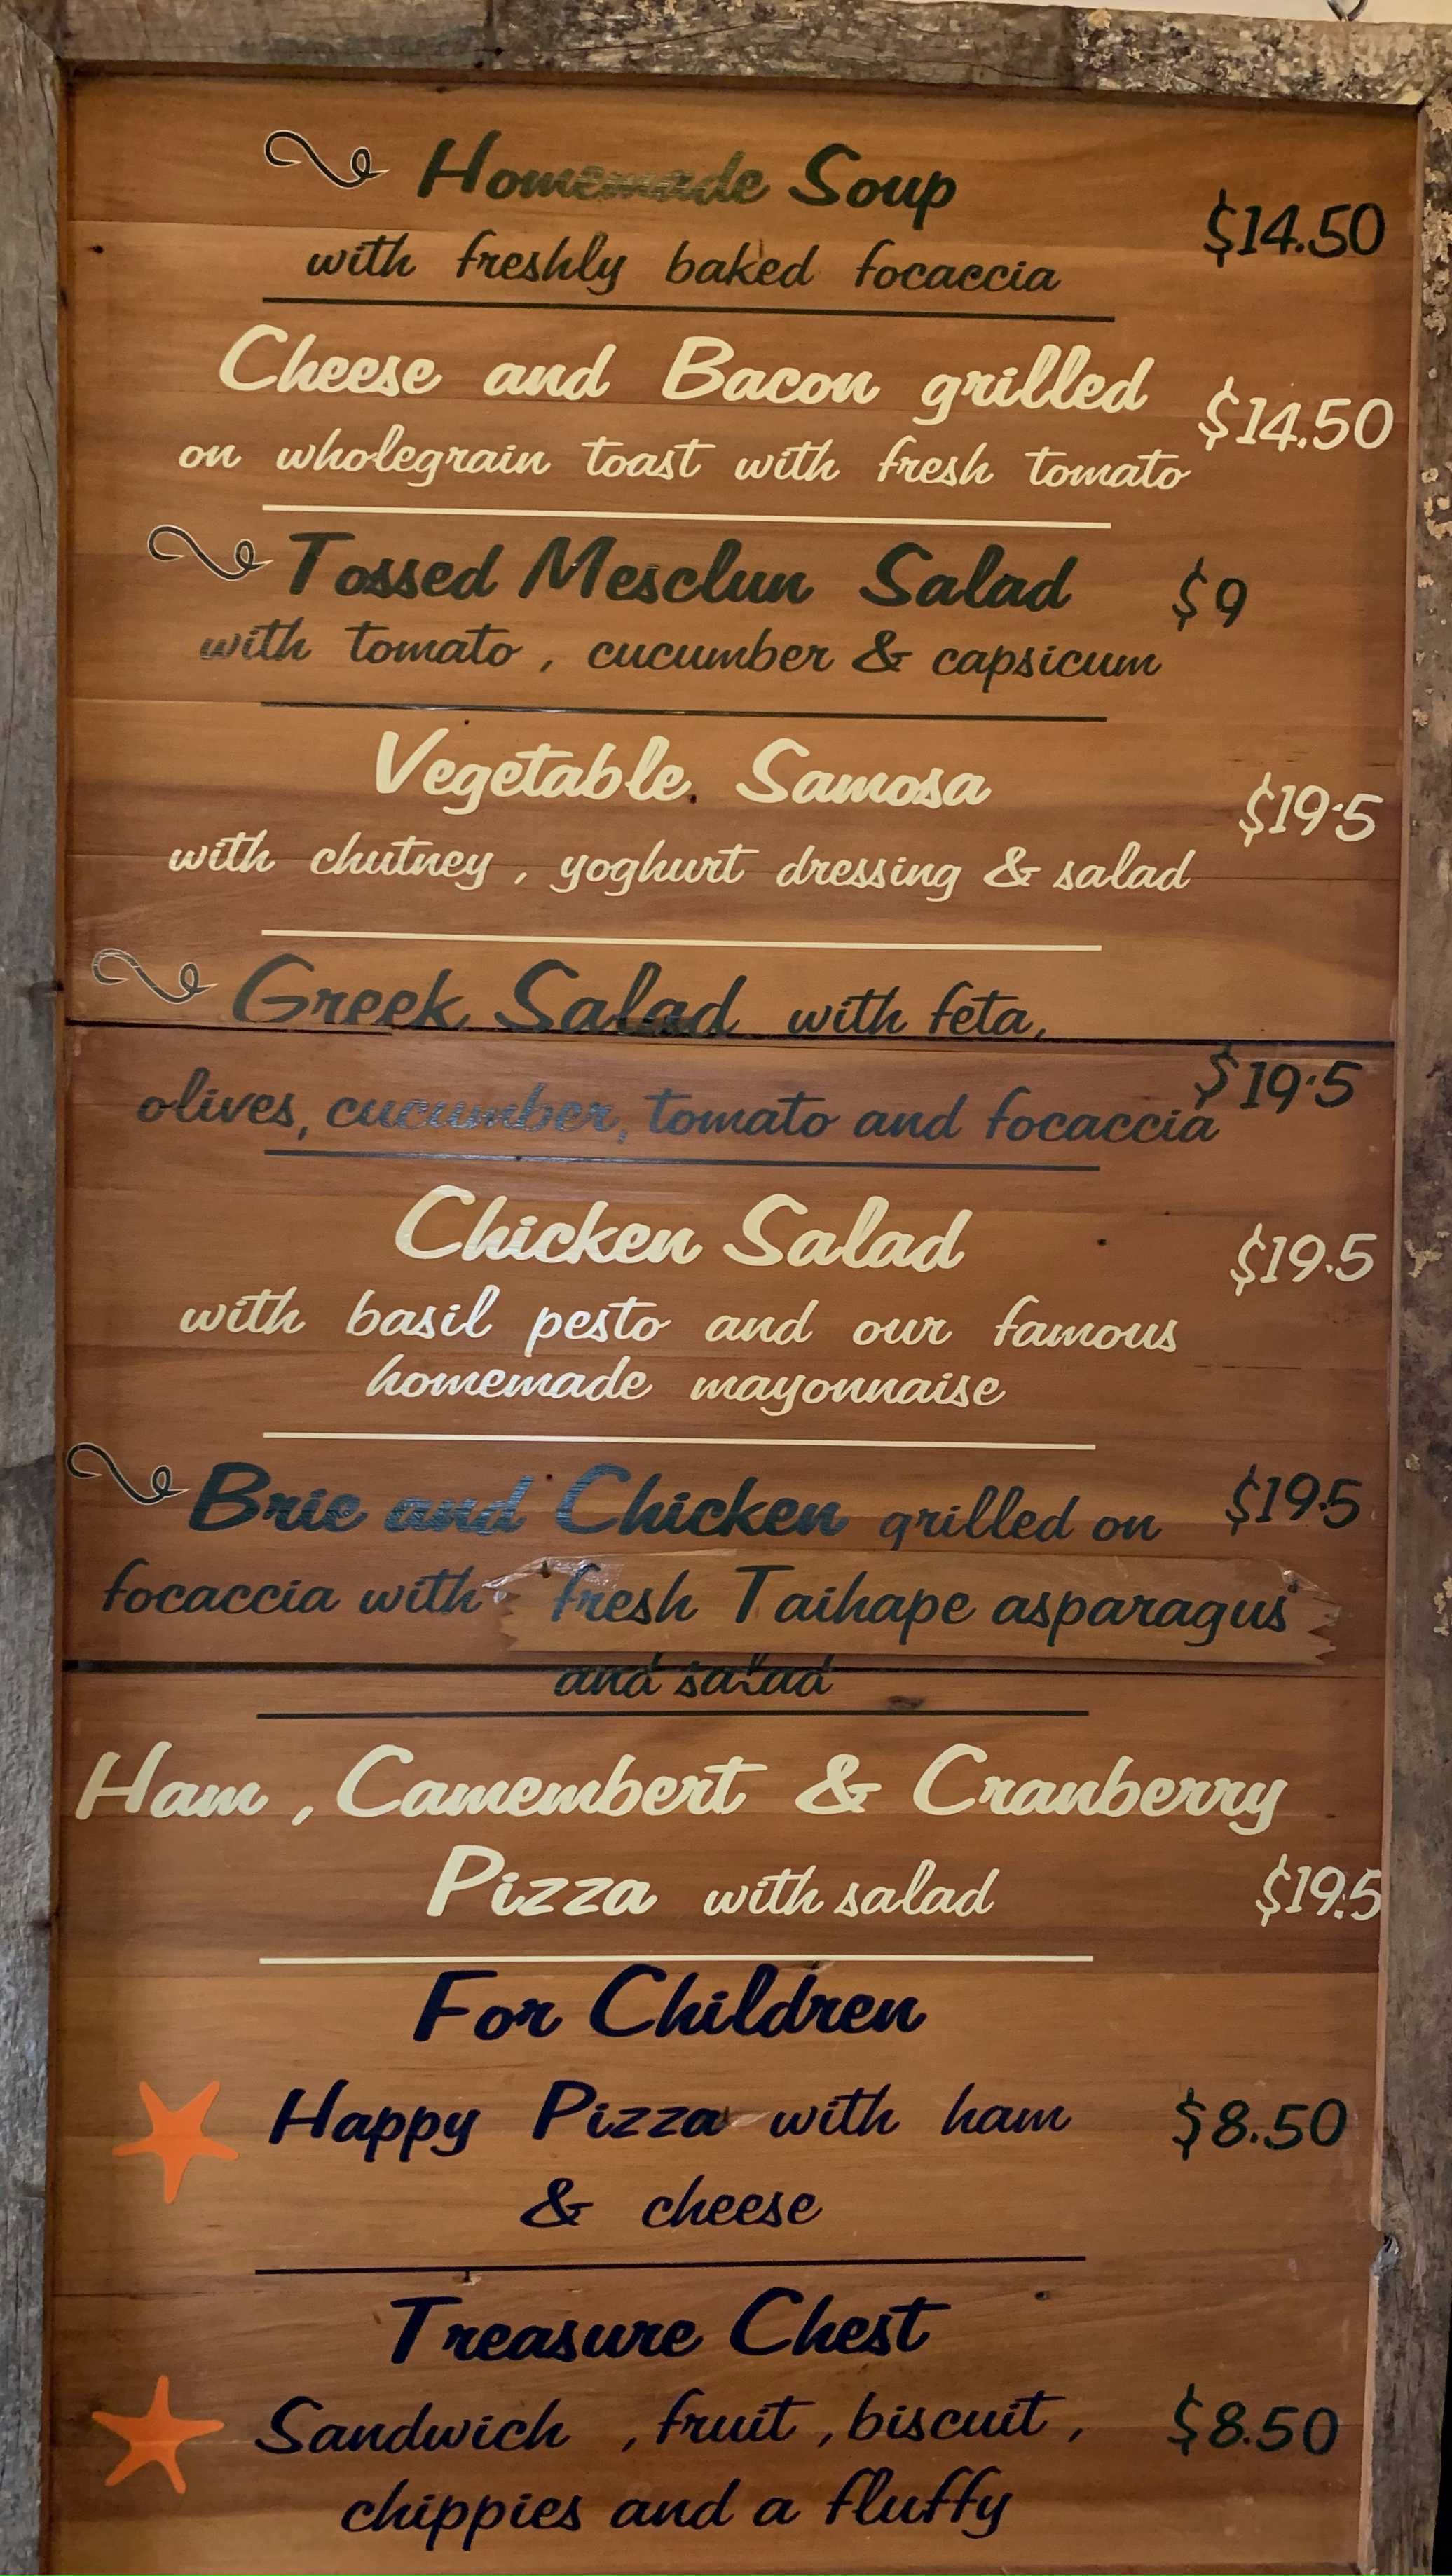 Homemade Soup
$14.50
with freshly baked focaccia
Cheese and Bacon grilled
$14.50
on wholegrain toast with fresh tomato
Tossed Mesclun Salad $9
with tomato , cucumber & capsicum
Vegetable Samosa
$19.5
with chutney , yoghurt dressing & salad
Greek Salad with feta,
$19.5
olives, cucumber, tomato and focaccia
Chicken Salad
$19.5
with basil pesto and our famous
homemade mayonnaise
Brie and Chicken grilled on $19.5
focaccia with fresh Taihape asparagus
and salad
Ham , Camembert & Cranberry
Pizza with salad $19.5
For Children
Happy Pizza with ham $8.50
& cheese
Treasure Chest
Sandwich , fruit , biscuit , $8.50
chippies and a fluffy